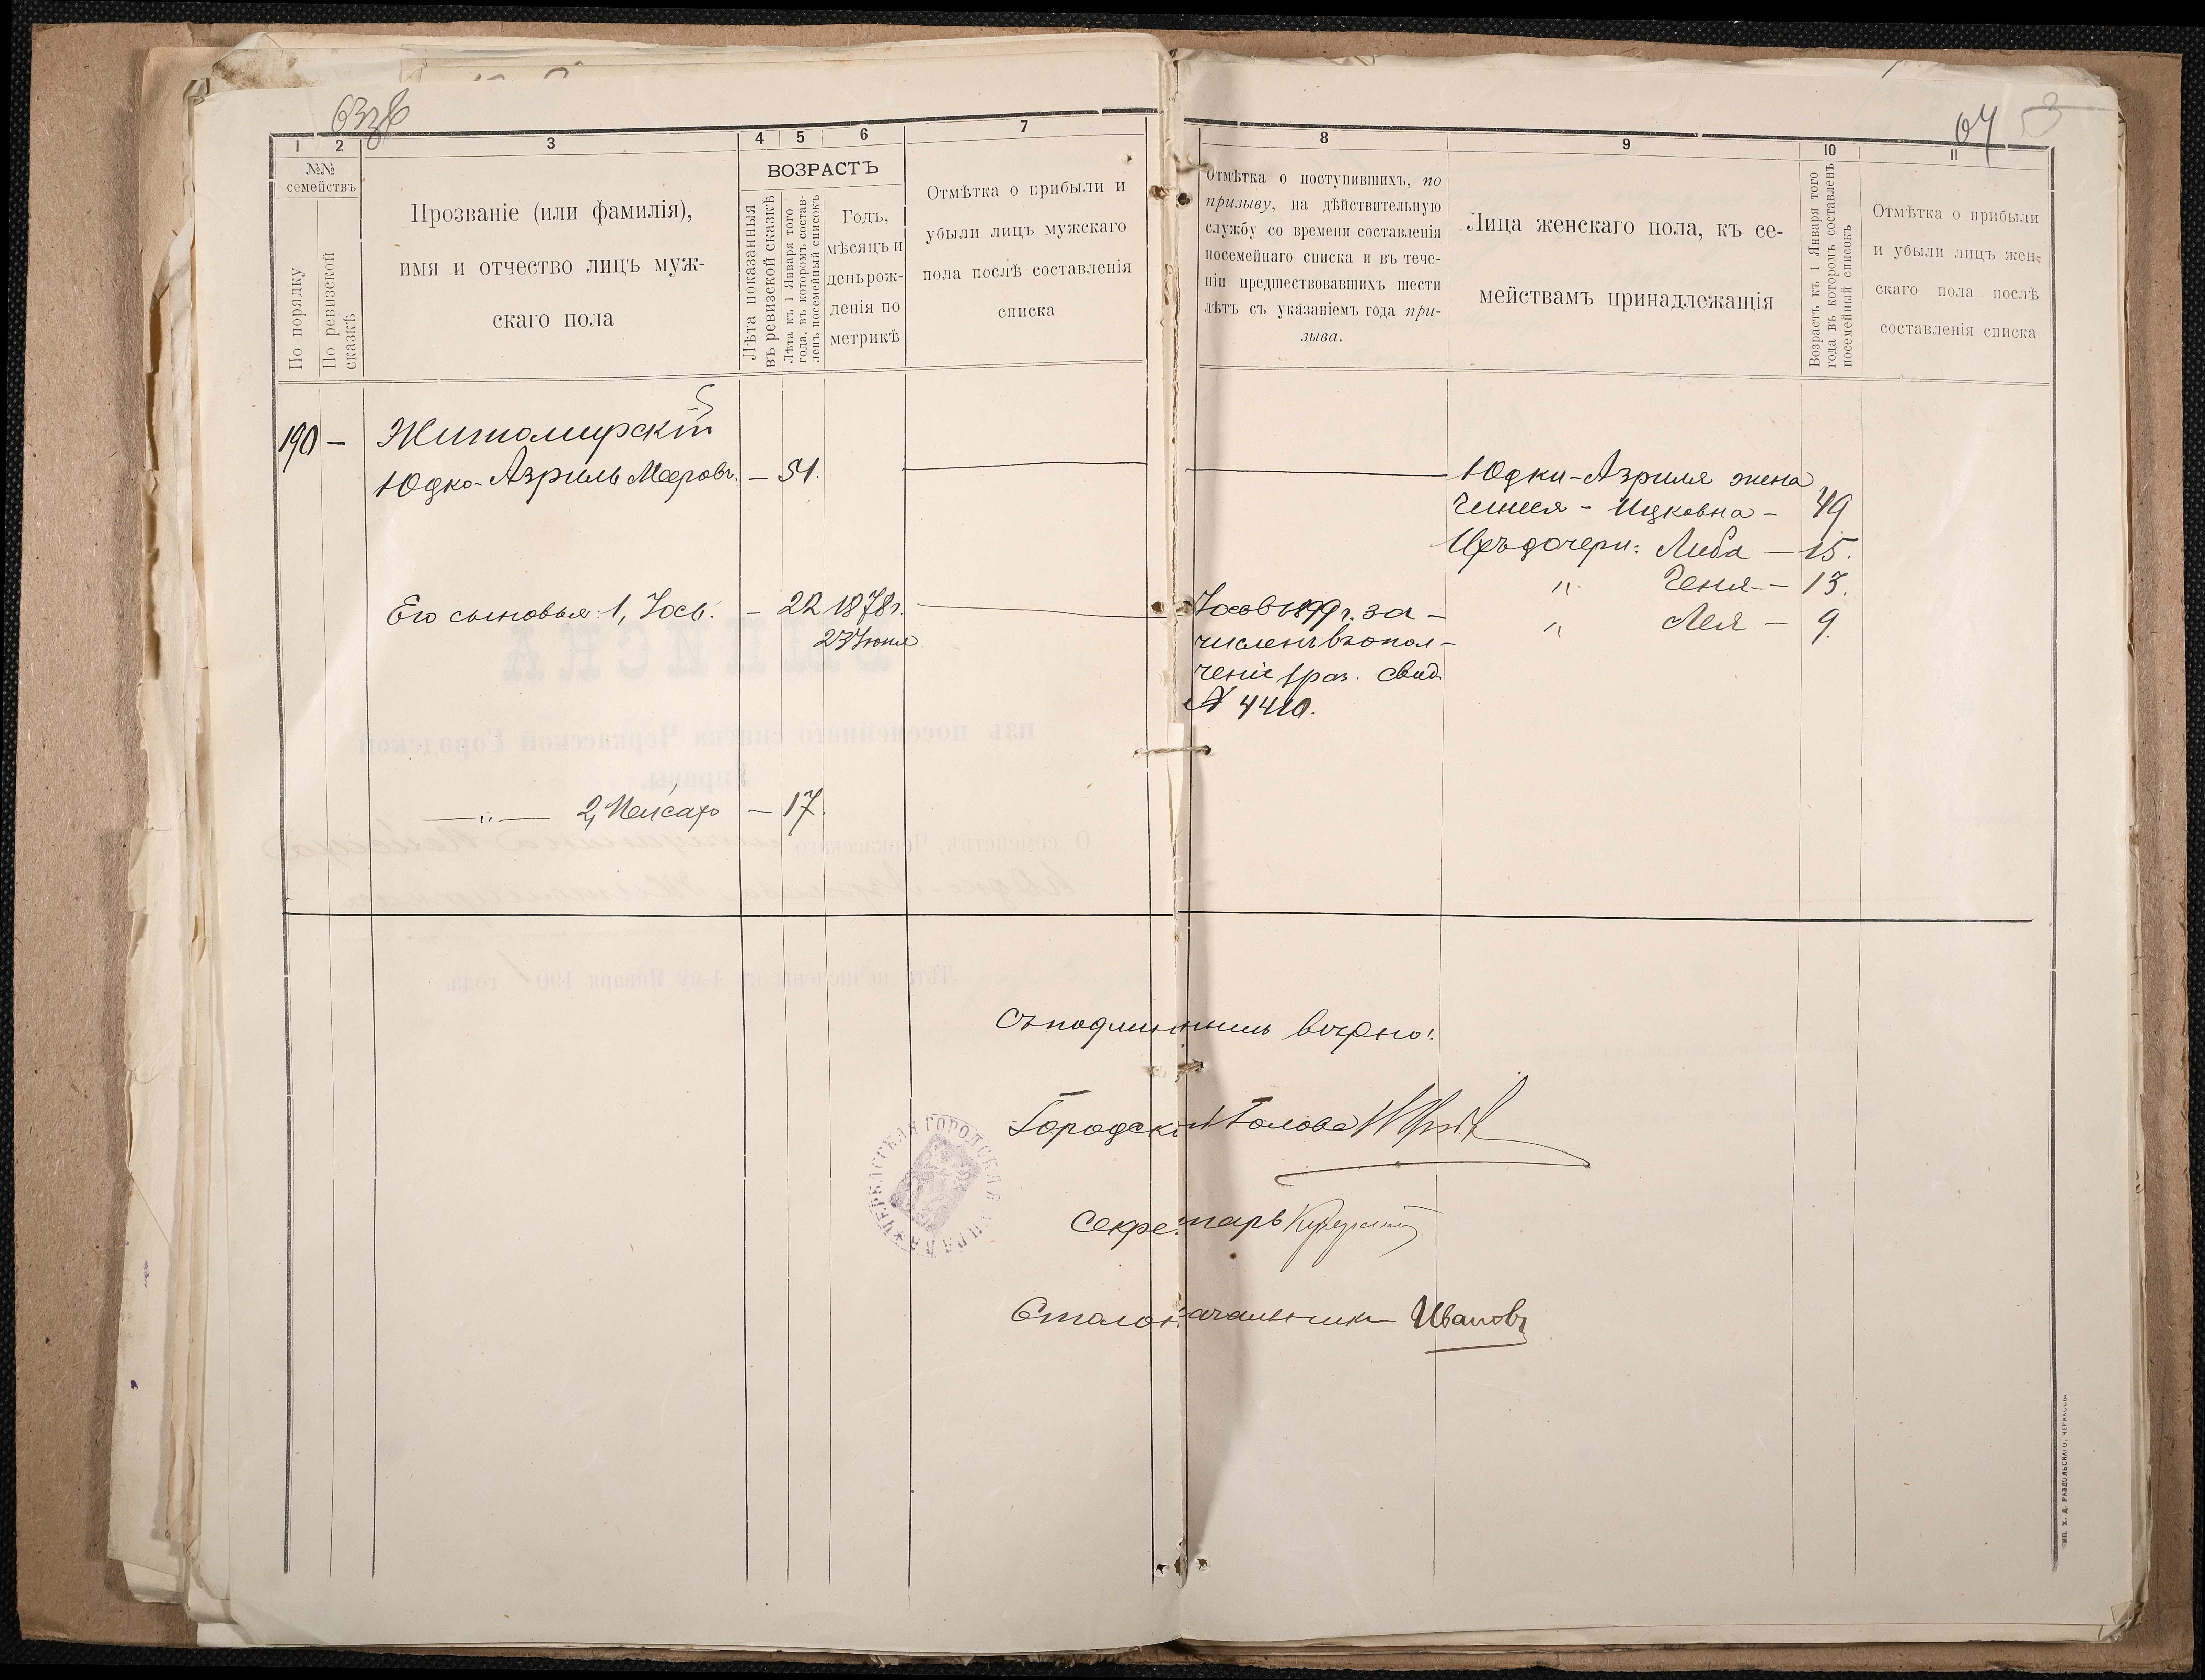 63об
64
1
2
3
4
5
6
7
№№
семействъ
По порядку
По ревизской
сказкѣ
Прозваніе (или фамилія),
имя и отчество лицъ муж-
скаго пола
ВОЗРАСТЪ
Лѣта показанныя
въ ревизской сказкѣ
Лѣта къ 1 Января того
года, въ которомъ состав-
ленъ посемейный списокъ
Годъ,
мѣсяцъ и
день рож-
денія по
метрикѣ
Отмѣтка о прибыли и
убыли лицъ мужскаго
пола послѣ составленія
списка
8
9
10
11
Отмѣтка о поступившихъ, по
призыву, на дѣйствительную
службу со времени составленія
посемейнаго списка и въ тече-
ніи предшествовавшихъ шести
лѣтъ съ указаніемъ года при-
зыва.
Лица женскаго пола, къ се-
мействамъ принадлежащія
Возрастъ къ 1 Января того
года въ которомъ составленъ
посемейный списокъ
Отмѣтка о прибыли
и убыли лицъ жен-
скаго пола послѣ
составленія списка
190 — Житомирскій
Юдко-Азриль Мееровъ. — 51.
Его сыновья: 1, Іось. — 22 1878 г.
23 Іюня
—„— 2, Пейсахъ — 17.
Іось въ 1899 г. за-
численъ въ опол-
ченіе 1 раз. свид
№ 4410.
Юдки-Азриля жена
Ицковна — 49
Ихъ дочери: Либа — 15.
„ Геня — 13.
„ Лея — 9.
Съ подлиннымъ вѣрно:
Городской Голова
Секретарь
Столоначальникъ Ивановъ
ЧЕРКАССКАЯ ГОРОДСКАЯ УПРАВА
Тип. Х. Д. РАЗДОЛЬСКАГО, ЧЕРКАССЫ.